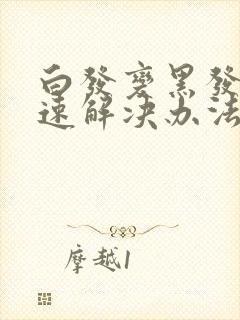 白發变黑發
速解决办法
摩越1